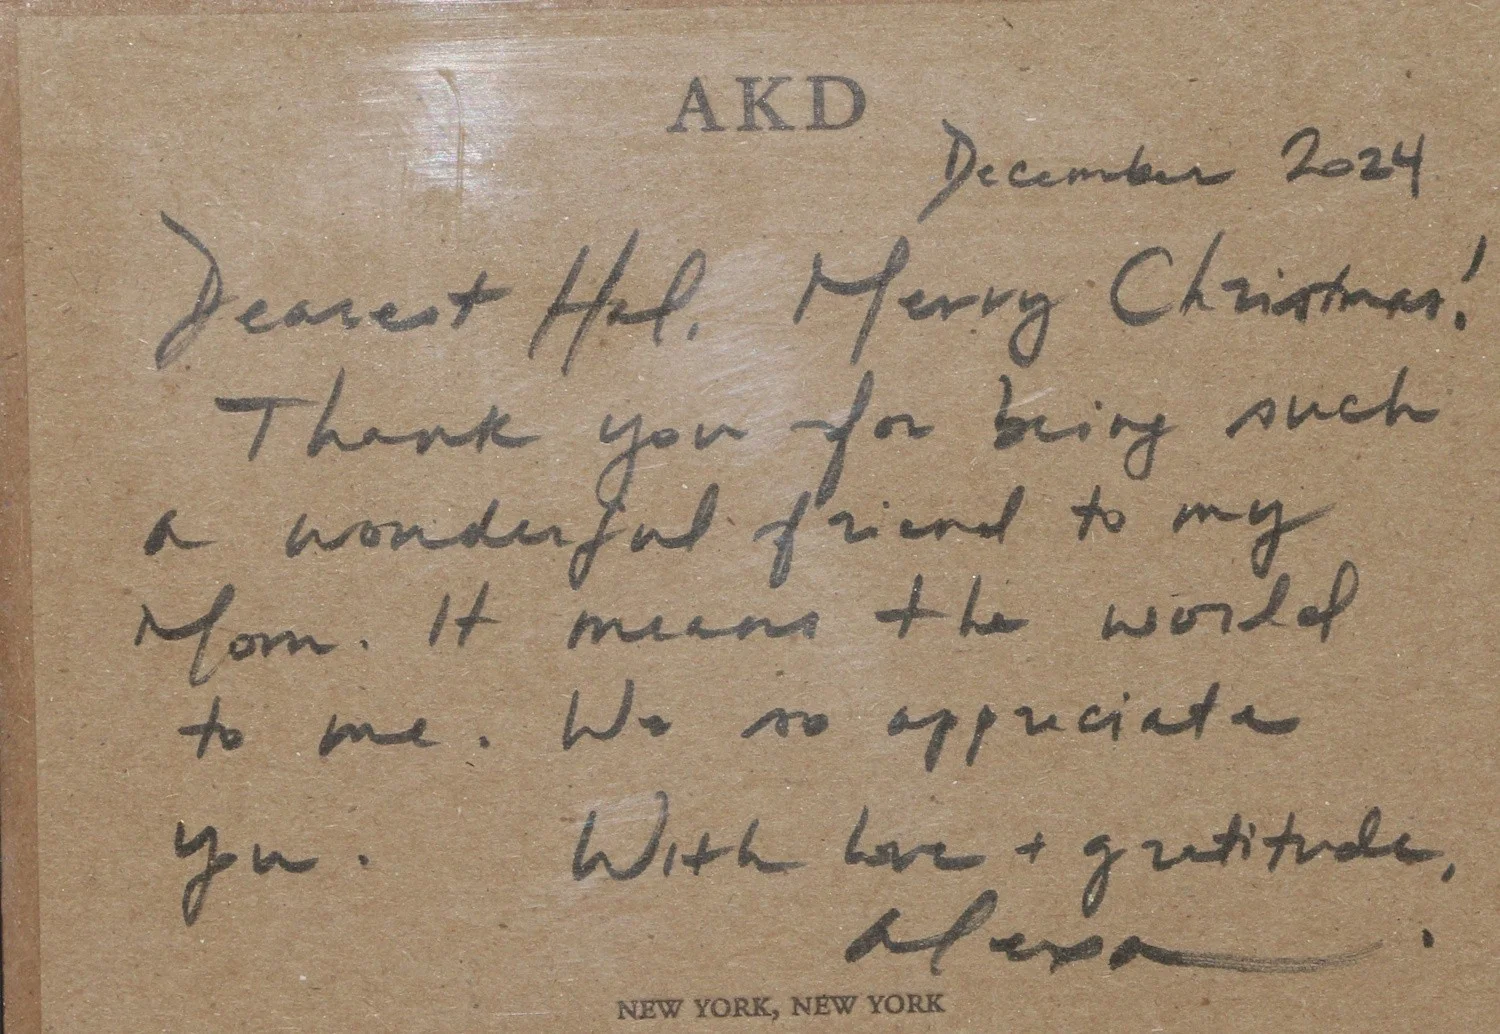 AKD
December 2024
Dearest Hal, Merry Christmas!
Thank you for being such
a wonderful friend to my
Mom. It means the world
to me. We so appreciate
you. With love + gratitude,
Alexa.
NEW YORK, NEW YORK